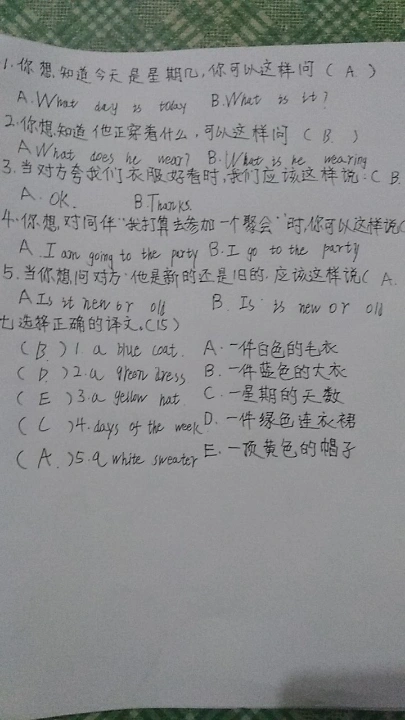 1.你想知道今天是星期几,你可以这样问(A.)
A.What day is today B.What is it?
2.你想知道他正穿着什么,可以这样问(B.)
A What does he wear? B.What is he wearing
3.当对方夸我们衣服好看时,我们应该这样说:(B.
A.OK. B Thanks.
4.你想对同伴“我打算去参加一个聚会”时,你可以这样说(
A.I am going to the party B.I go to the party
5.当你想问对方,他是新的还是旧的,应该这样说(A.
A Is it new or old B. Is is new or old
七选择正确的译文。(15)
(B.)1.a blue coat. A.一件白色的毛衣
(D.)2.a green dress B.一件蓝色的大衣
(E)3.a yellow hat. C.一星期的天数
(C)4.days of the week D.一件绿色连衣裙
(A.)5.a white sweater E.一顶黄色的帽子